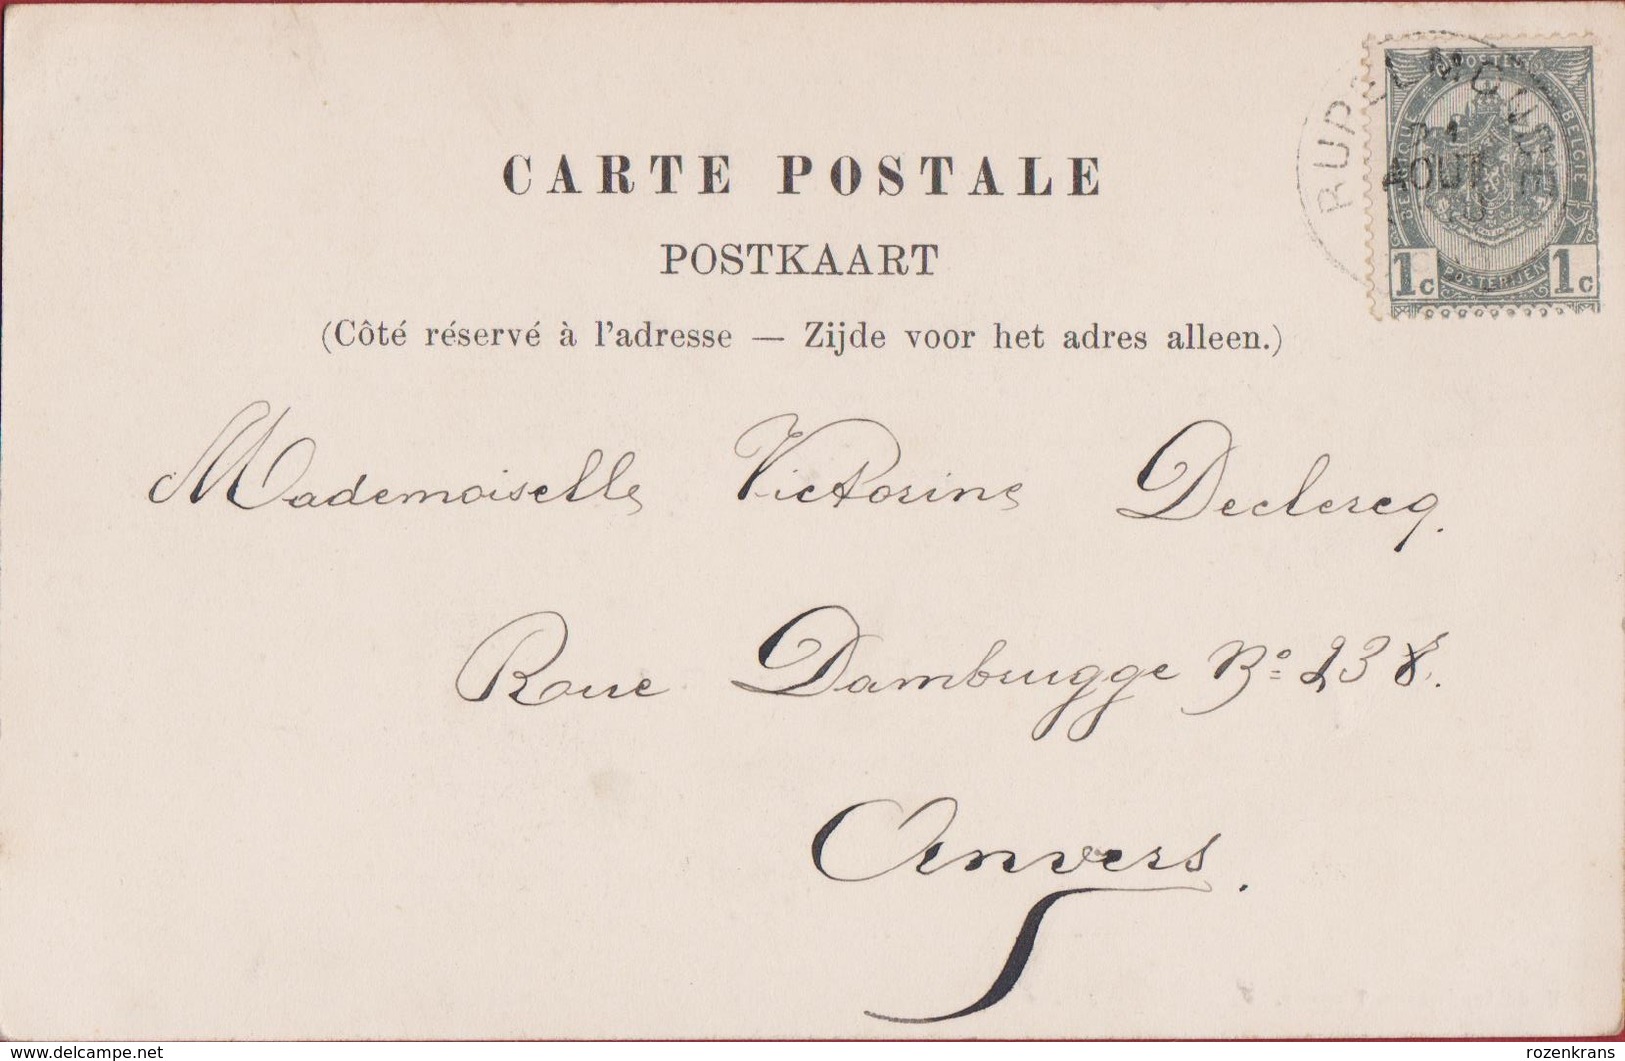 CARTE POSTALE
POSTKAART
(Côté réservé à l'adresse — Zijde voor het adres alleen.)
RUPELMONDE
AOUT
POSTES
BELGIQUE
BELGIE
POSTERIJEN
1c 1c
Mademoiselle Victorine Declercq.
Rue Dambrugge No 238.
Anvers.
www.delcampe.net
rozenkrans